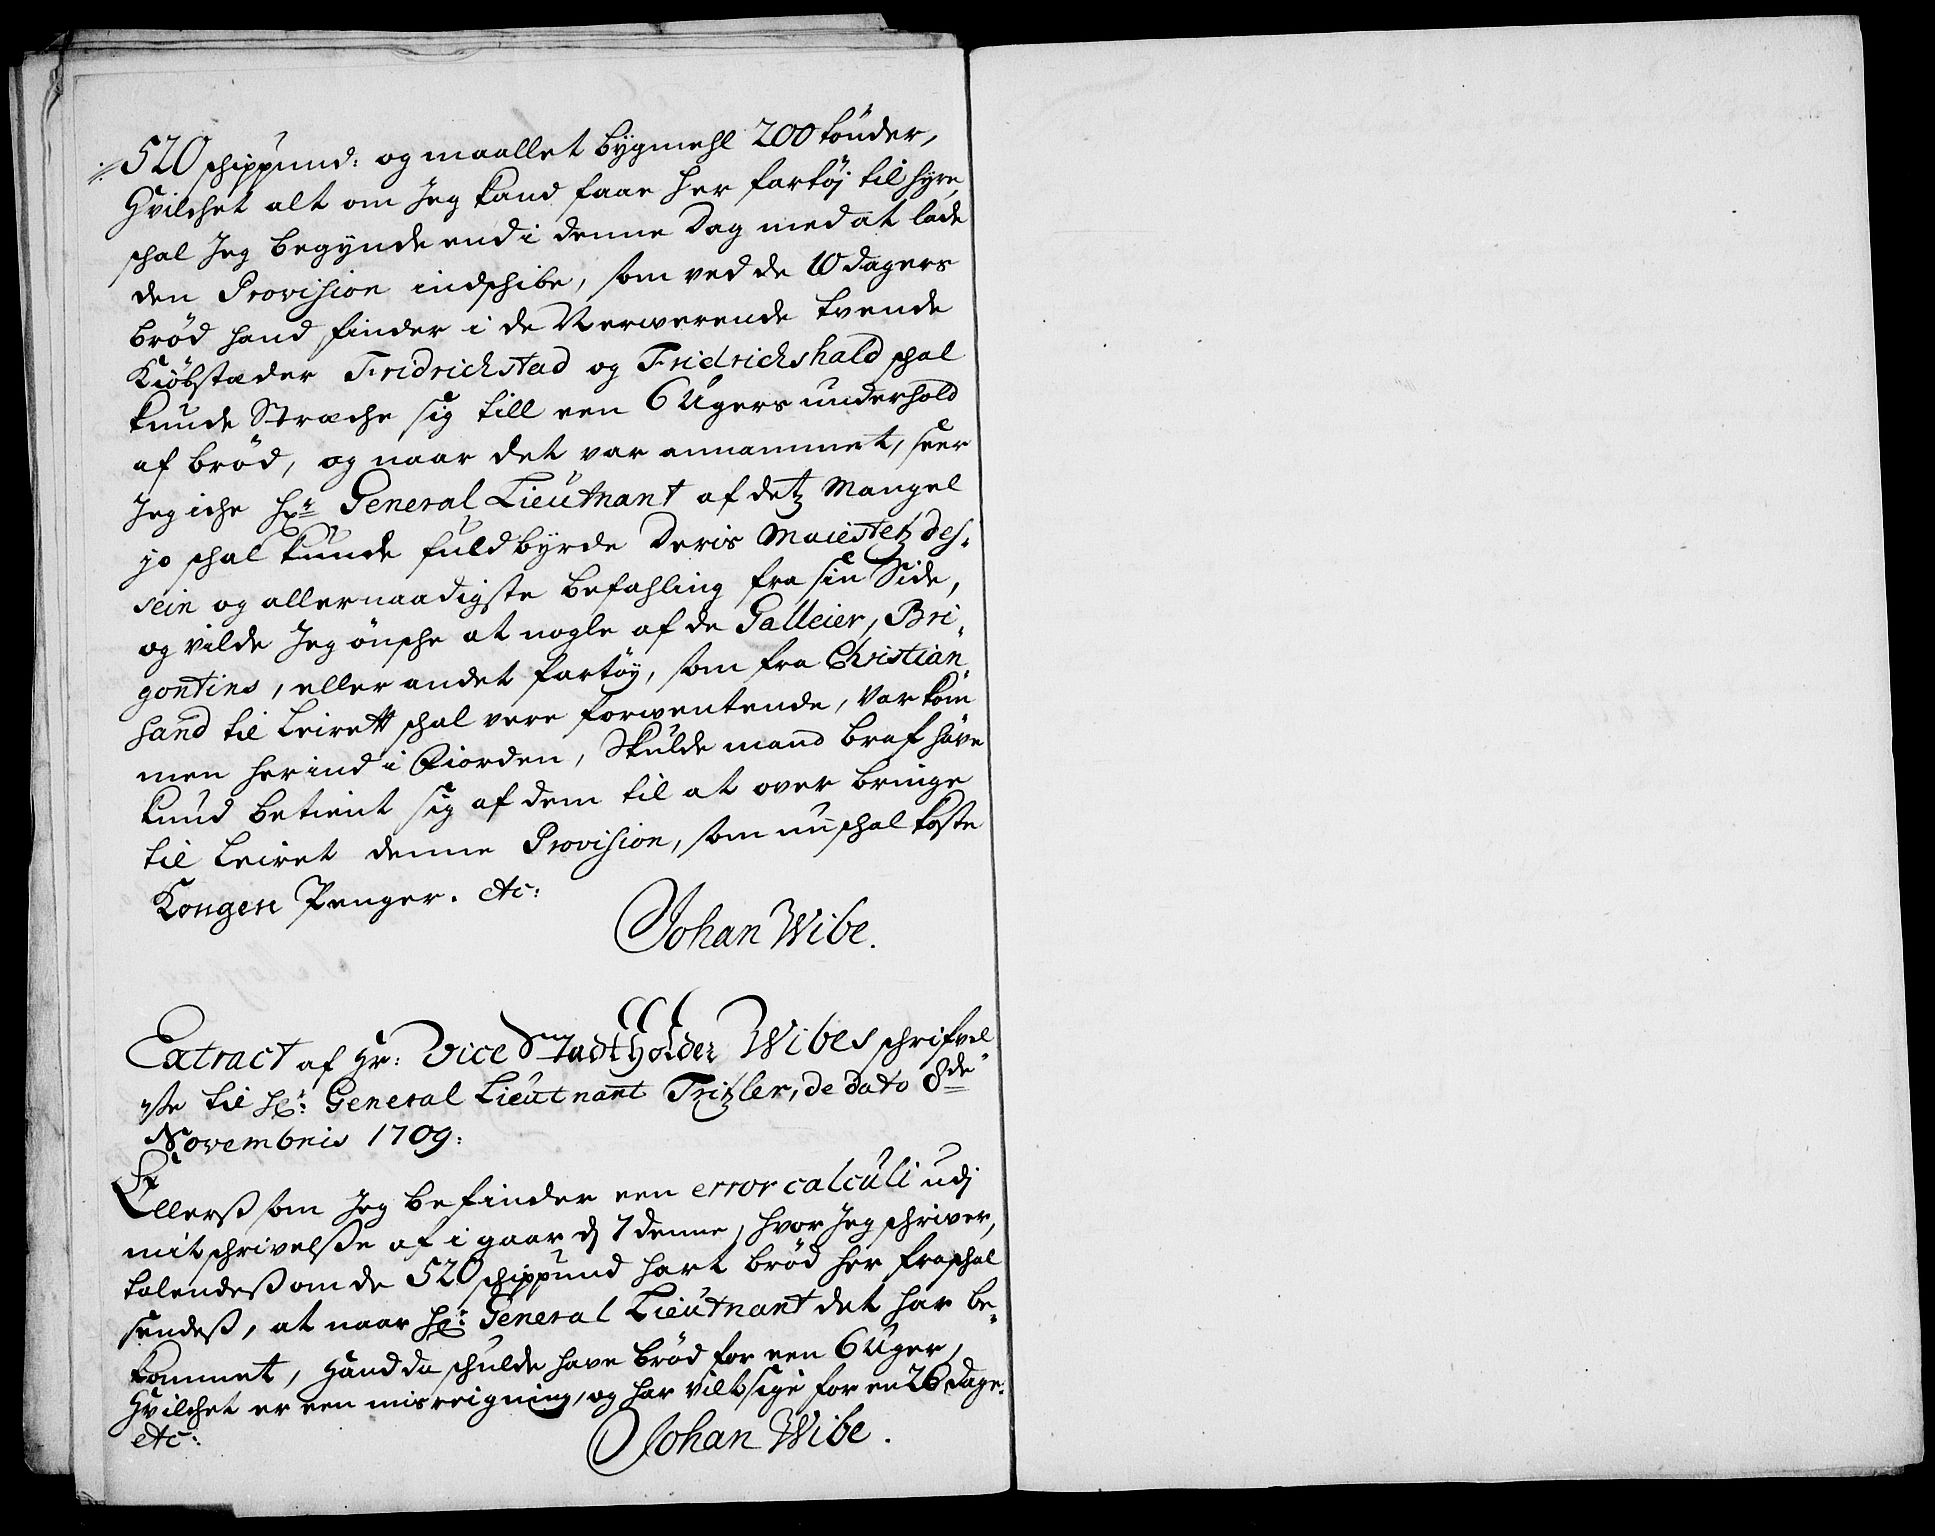 520 schippund: og maallet bygmehl 200 tönder,
Hvilchet alt om Jeg kand faae her fartöj til hyre,
schal Jeg begynde end i denne Dag med at lade
den Provision indschibe, som ved de 10 dagers
bröd hand finder i de Nerwerende tvende
Kiöbstæder Fridrichstad og Fridrichshald schal
kunde Stræche sig till een 6 Ugers underhold
af bröd, og naar det var annammet, seer
Jeg iche Hr: General Lieutnant af detz Mangel
jo schal kunde fuldbyrde Deris Maiestetz des-
sein og allernaadigste befahling fra sin Side,
og vilde Jeg önsche at nogle af de Galleier, Bri-
gontins, eller andet fartöy, som fra Christian-
sand til Leirett schal vere forwentende, var kom̄
men her ind i Fiorden, Skulde mand braf have
kund betient sig af dem til at over bringe
til Leiret denne Provision, som nu schal koste
Kongen Penger. etc:
Johan Wibe.
Extract af Hr: Vice Stadtholder Wibes schrifvel
ße til Hr: General Lieutnant Tritzler, de dato 8de
Novembris 1709:
Ellerß som Jeg befinder een error calculi udj
mit schrivelße af i gaar dj 7 denne, hvor Jeg schriver,
talendeß om de 520 schippund hart bröd her fra schal
sendeß, at naar Hr: General Lieutnant det har be-
kommet, Hand da schulde have bröd for een 6 Uger,
Hvilchet er een misreigning, og har vilt sige for en 26 dage.
etc:
Johan Wibe.